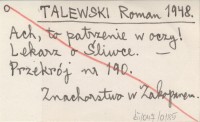 TALEWSKI Roman 1948.
Ach, to patrzenie w oczy!
Lekarz o Śliwce. —
Przekrój nr 190.
Znachorstwo w Zakopanem.